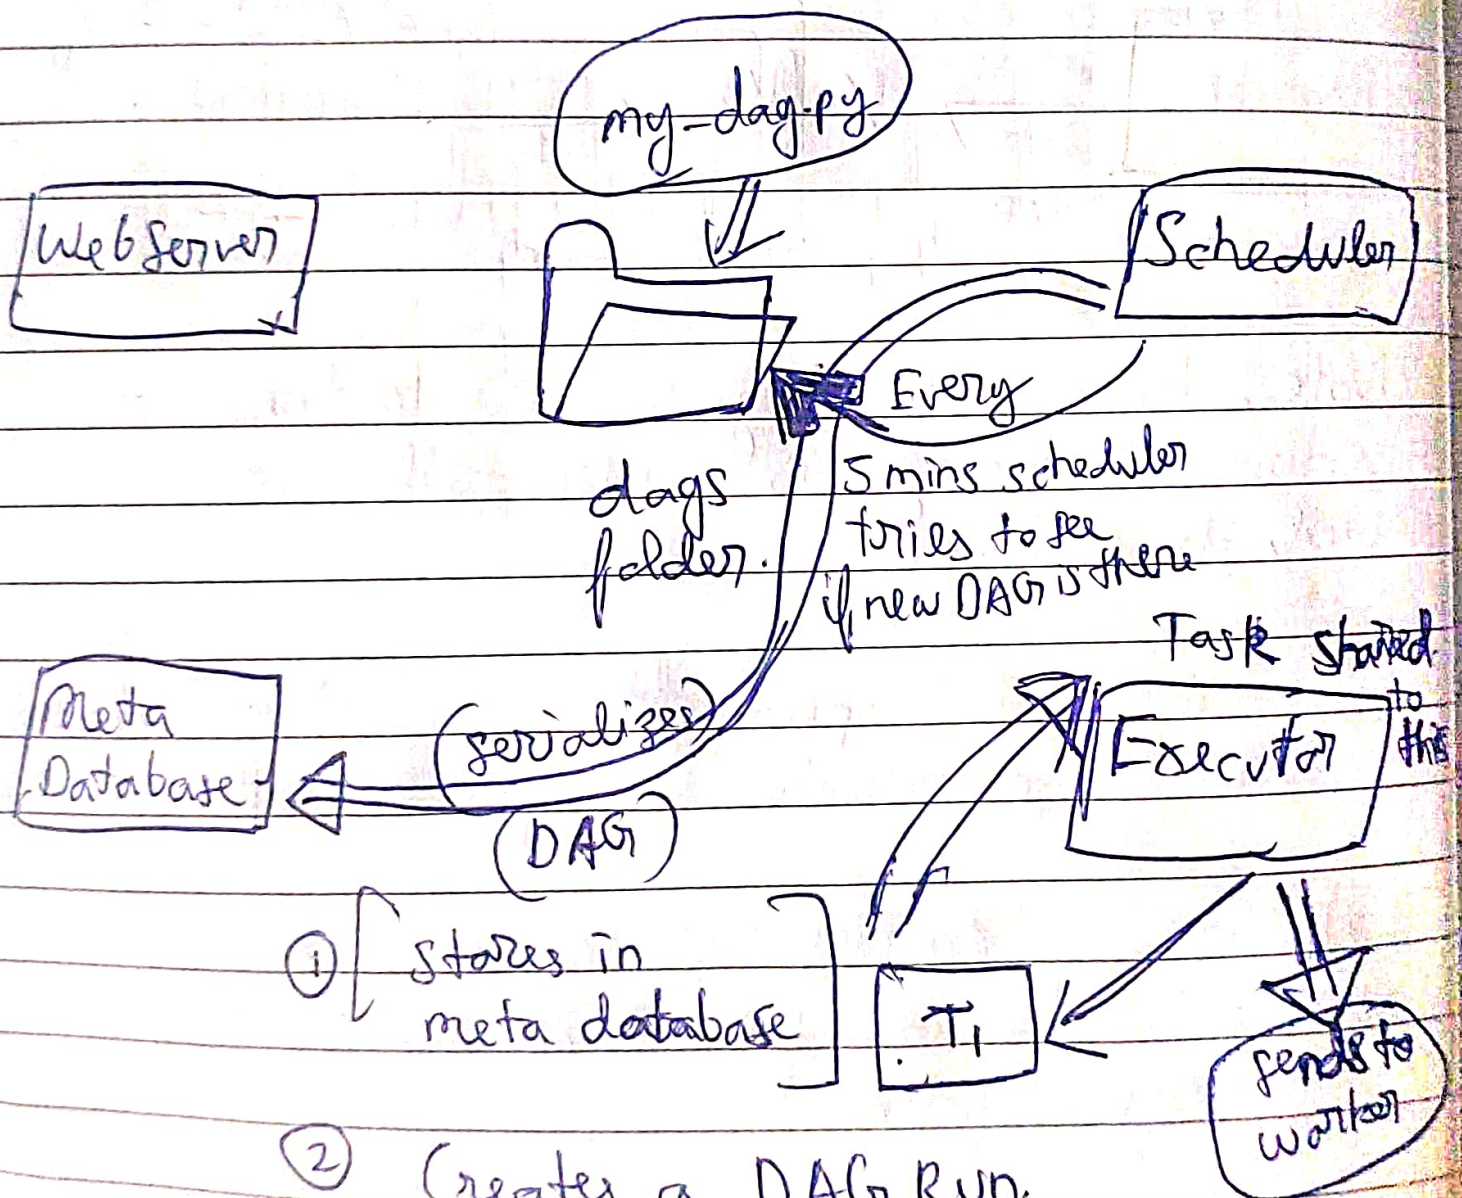 my_dag.py
Webserver
Scheduler
Every
5 mins scheduler
tries to see
if new DAG is there
dags
folder.
Task shared
to
this
Executor
Meta
Database
(serializes)
(DAG)
① [stores in
meta database]
T1
sends to
worker
② Creates a DAG Run.